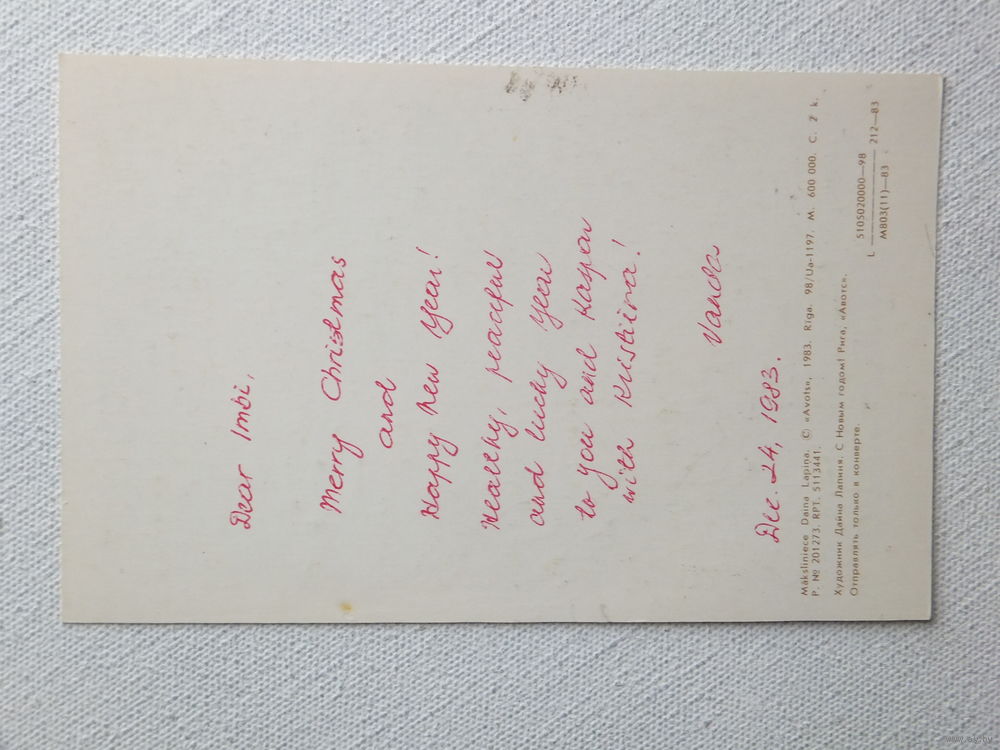 Dear Imbi,
Merry Christmas
and
Happy New Year!
Healthy, peaceful
and lucky year
to you and Kaspar
with Kristiina!
Vanda
Dec. 24, 1983.
Māksliniece Daina Lapiņa. © «Avots», 1983. Rīga. 98/Ua-1197. M. 600 000. C. 2 k.
P. № 201273. RPT. 5113441.
Художник Дайна Лапиня. С Новым годом! Рига, «Авотс».
Отправлять только в конверте.
L 5105020000—98
M803(11)—83 212—83
www.ay.by